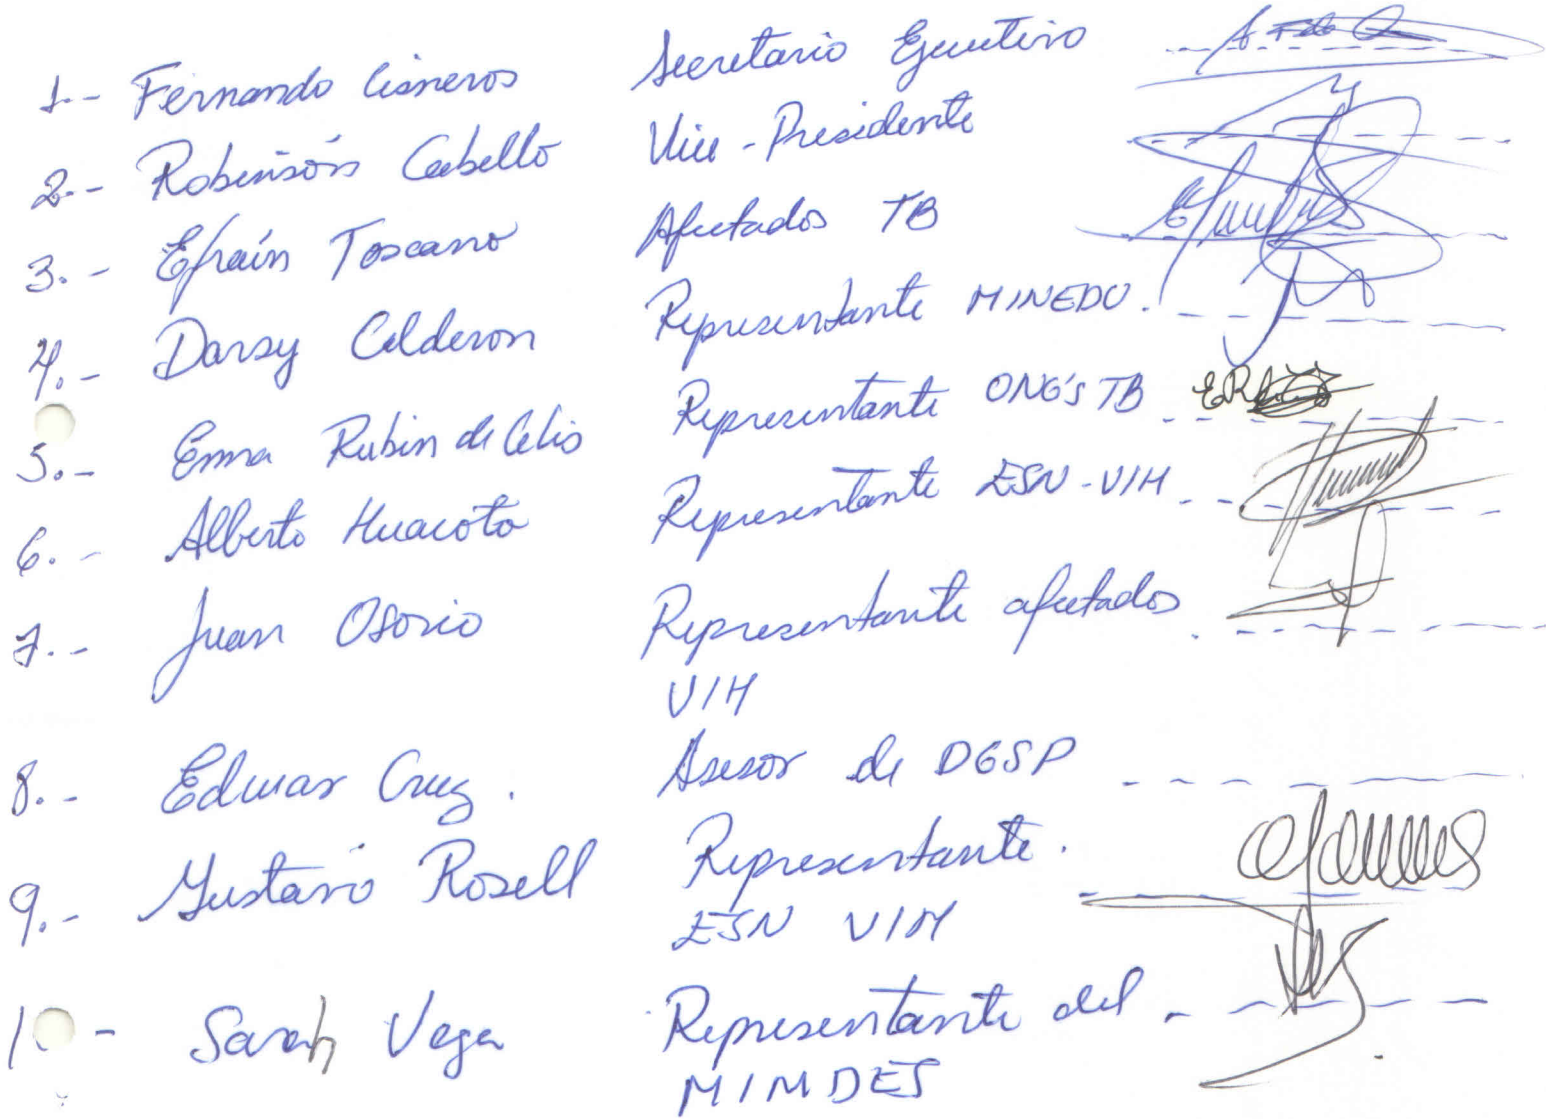 1.- Fernando Cisneros Secretario Ejecutivo
2.- Robinsón Cabello Vice-Presidente
3.- Efraín Toscano Afectados TB
4.- Darsy Calderon Representante MINEDU.
5.- Emma Rubin de Celis Representante ONG'S TB
6.- Alberto Huacoto Representante ESN-VIH
7.- Juan Osorio Representante afectados
VIH
8.- Edwar Cruz. Asesor de DGSP
9.- Gustavo Rosell Representante.
ESN VIH
10- Sarah Vega Representante del
MIMDES